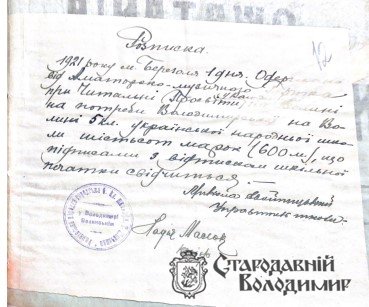 Розписка
1921 року м. Березоля 1 дня. Одер
від Аматорсько-музичного
при Читальні "Просвіти"
на потреби Володимирської на Во
лині 5 кл. української народньої шко
ли шістьсот марок (600 м), що
підписами з відтиском шкільної
печатки свідчиться.
Микола
Управитель школи
Надія
у Володимирі
Волинськім
Стародавній
Володимир